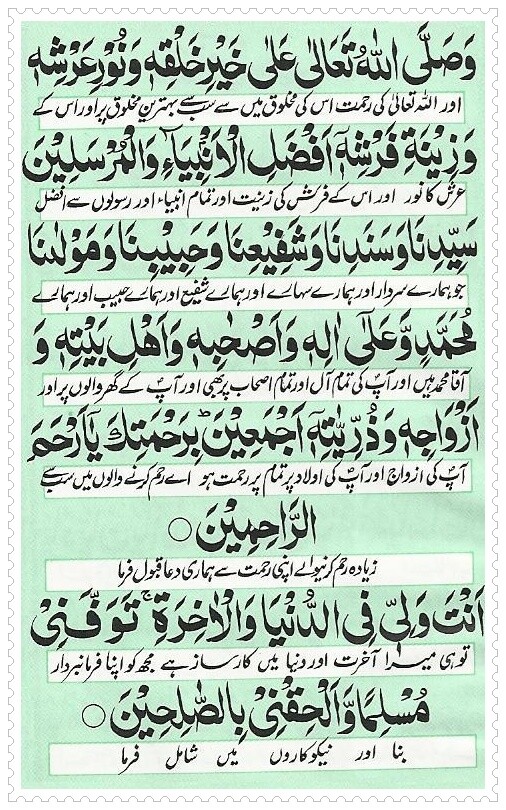 وَصَلَّى اللهُ تَعَالٰى عَلٰى خَيْرِ خَلْقِهٖ وَنُوْرِ عَرْشِهٖ
اور اللہ تعالیٰ کی رحمت اس کی مخلوق میں سے سب سے بہترین مخلوق پر اور اس کے
وَزِيْنَةِ فَرْشِهٖ اَفْضَلِ الْاَنْبِيَآءِ وَالْمُرْسَلِيْنَ
عرش کا نور اور اس کے فرش کی زینت اور تمام انبیاء اور رسولوں سے افضل
سَيِّدِنَا وَسَنَدِنَا وَشَفِيْعِنَا وَحَبِيْبِنَا وَمَوْلٰنَا
جو ہمارے سردار اور ہمارے سہارے اور ہمارے شفیع اور ہمارے حبیب اور ہمارے
مُحَمَّدٍ وَّعَلٰٓى اٰلِهٖ وَاَصْحٰبِهٖ وَاَهْلِ بَيْتِهٖ وَ
آقا محمد ہیں اور آپؐ کی تمام آل اور تمام اصحاب پر بھی اور آپؐ کے گھر والوں پر اور
اَزْوَاجِهٖ وَذُرِّيّٰتِهٖٓ اَجْمَعِيْنَ ط بِرَحْمَتِكَ يَآ اَرْحَمَ
آپؐ کی ازواج اور آپؐ کی اولاد پر تمام پر رحمت ہو اے رحم کرنے والوں میں سب سے
الرَّاحِمِيْنَ ○
زیادہ رحم کرنیوالے اپنی رحمت سے ہماری دعا قبول فرما
اَنْتَ وَلِيّٖ فِى الدُّنْيَا وَالْاٰخِرَةِ ج تَوَفَّنِيْ
تو ہی میرا آخرت اور دنیا میں کارساز ہے مجھ کو اپنا فرمانبردار
مُسْلِمًا وَّاَلْحِقْنِيْ بِالصّٰلِحِيْنَ ○
بنا اور نیکوکاروں میں شامل فرما